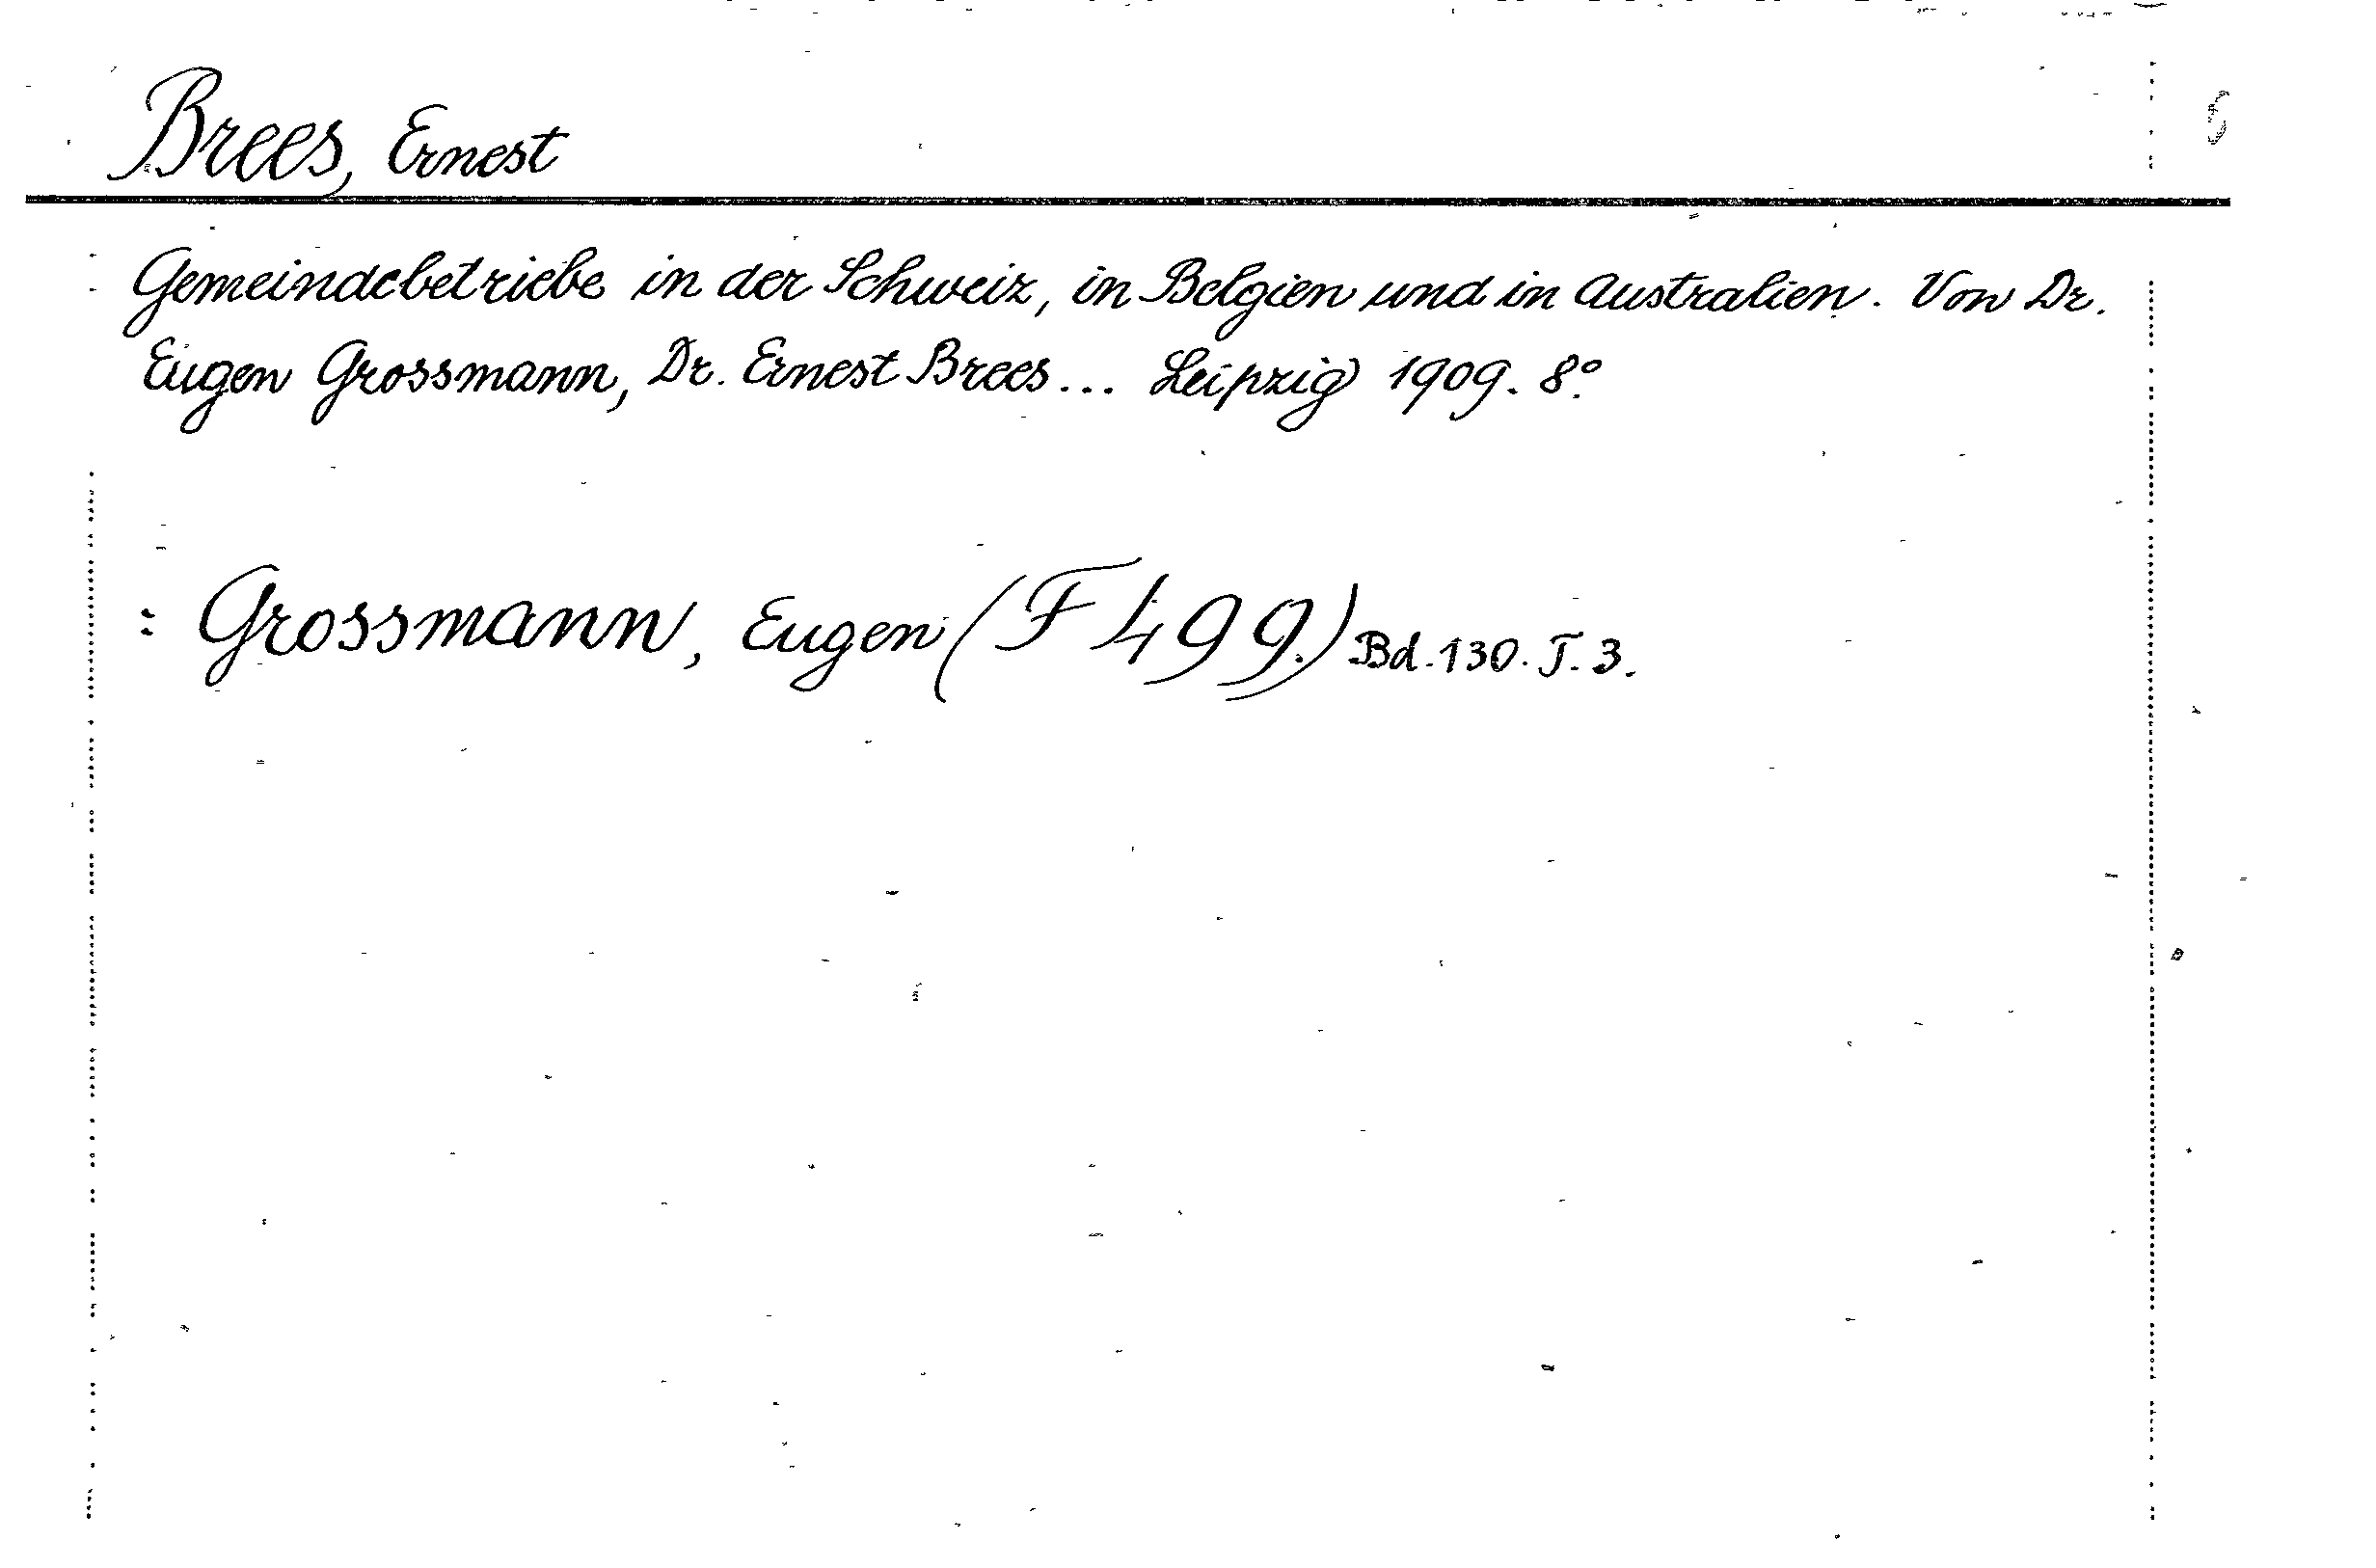 Brees, Ernest
Gemeindebetriebe in der Schweiz, in Belgien und in Australien. Von Dr.
Eugen Grossmann, Dr. Ernest Brees... Leipzig 1909. 8°.
= Grossmann, Eugen (F 499.) Bd. 130. T. 3.